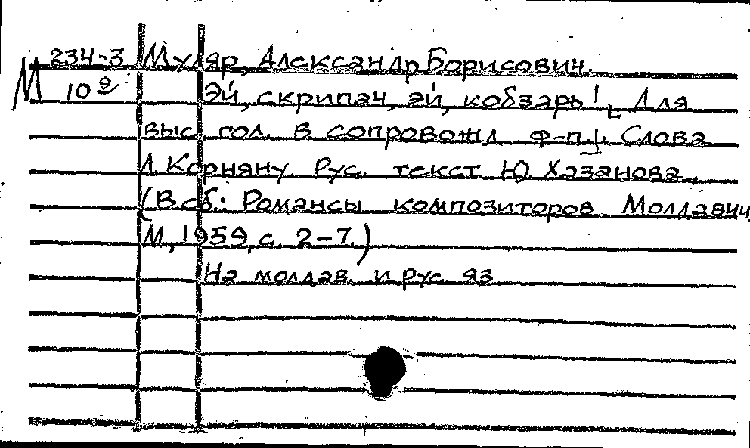 234-3 Муляр, Александр Борисович.
М 10⁹ Эй, скрипач, эй, кобзарь! [Для
выс. гол. в сопровожд. ф-п.]. Слова
Л. Корняну. Рус. текст Ю. Хазанова.
(В сб.: Романсы композиторов Молдавии.
М., 1959, с. 2-7.)
На молдав. и рус. яз.